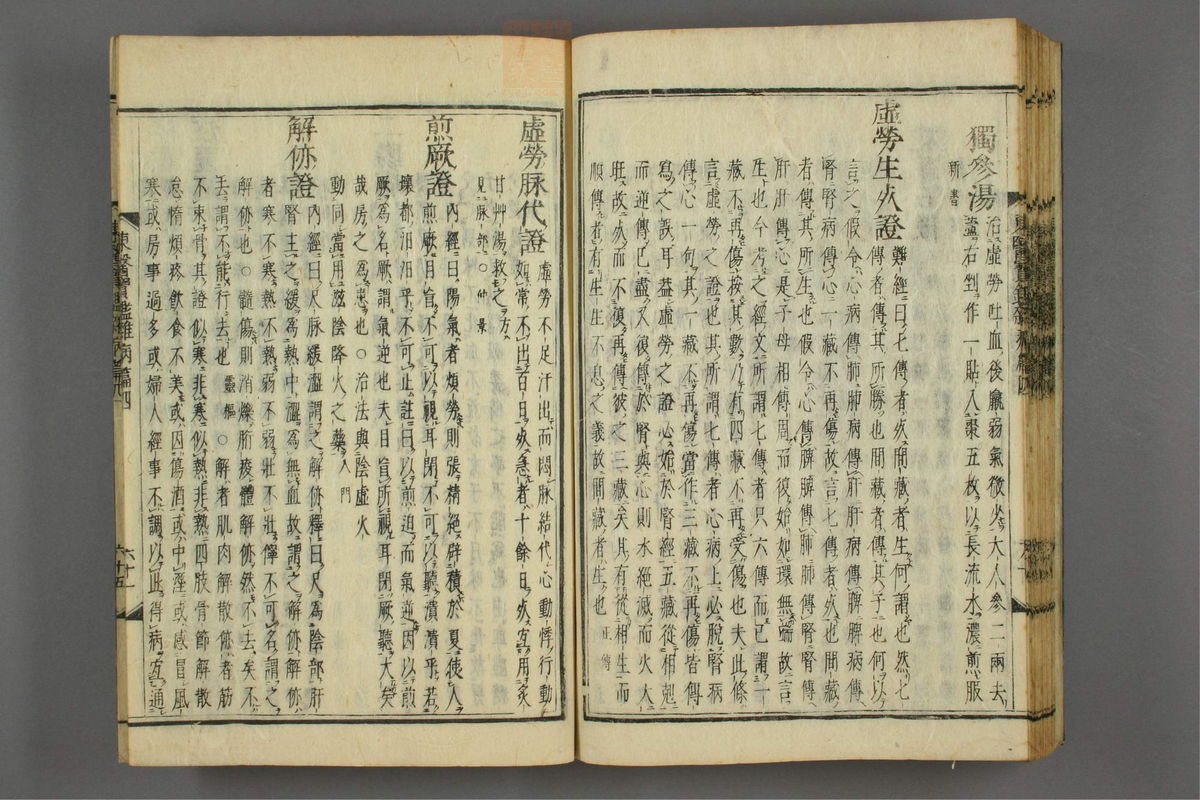 獨參湯治虛勞吐血後羸弱氣微火大人參二兩去
新書 蘆右剉作一貼入棗五枚以長流水濃煎服
虛勞生死證難經曰七傳者死間藏者生何謂也然七
傳者傳其所勝也間藏者傳其子也何以
言之假令心病傳肺肺病傳肝肝病傳脾脾病傳
腎腎病傳心一藏不再傷故言七傳者死也間藏
者傳其所生也假令心傳脾脾傳肺肺傳腎腎傳
肝肝傳心是子母相傳周而復始如環無端故言
生也今考之經文所謂七傳者只六傳而已謂一
藏不再傷按其數乃有四藏不再受傷也夫此條
言虛勞之證也其所謂七傳者心病上必脫腎病
傳心一句其一藏不再傷當作三藏不再傷皆傳
寫之誤耳蓋虛勞之證必始於腎經五藏從相剋
而逆傳已盡又復傳於腎與心則水絕滅而火大
旺故死而不復再傳彼之三藏矣其有從相生而
順傳者有生生不息之義故間藏者生也 正傳
虛勞脉代證虛勞不足汗出而悶脉結代心動悸行動
如常不出百日死急者十餘日死宜用炙
甘艸湯救之方
見脉部○仲景
煎厥證內經曰陽氣者煩勞則張精絕辟積於夏使人
煎厥目盲不可以視耳閉不可以聽潰潰乎若
壞都汩汩乎不可止註曰以煎迫而氣逆因以煎
厥為名厥謂氣逆也夫目盲所視耳閉厥聽大矣
哉房之為患也○治法與陰虛火
動同當用滋陰降火之藥入門
解㑊證內經曰尺脉緩澁謂之解㑊釋曰尺為陰部肝
腎主之緩為熱中澁為無血故謂之解㑊解㑊
者寒不寒熱不熱弱不弱壯不壯儜不可名謂之
解㑊也○髓傷則消爍胻痠體解㑊然不去矣不
去謂不能行去也靈樞○解者肌肉解散㑊者筋
不束骨其證似寒非寒似熱非熱四肢骨節解散
怠惰煩疼飲食不美或因傷酒或中濕或感冒風
寒或房事過多或婦人經事不調以此得病宜通
東醫寶鑑雜病篇四
六十五